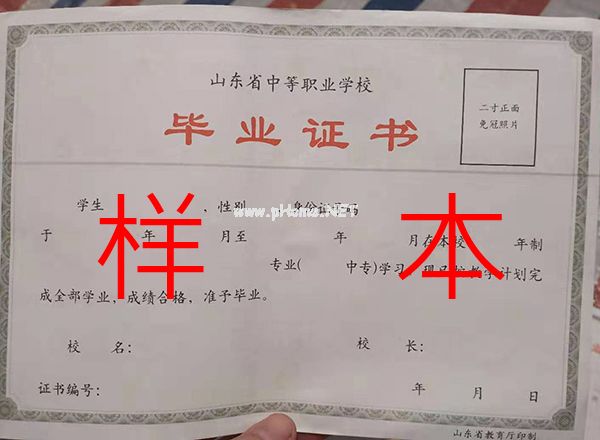 山东省中等职业学校
二寸正面
免冠照片
毕业证书
学生 ，性别
www.pHome.NET
于 年 月至 年 月在本校 年制
样本
专业( 中专)学习 计划完
成全部学业，成绩合格，准予毕业。
校 名： 校 长：
证书编号： 年 月 日
山东省教育厅印制